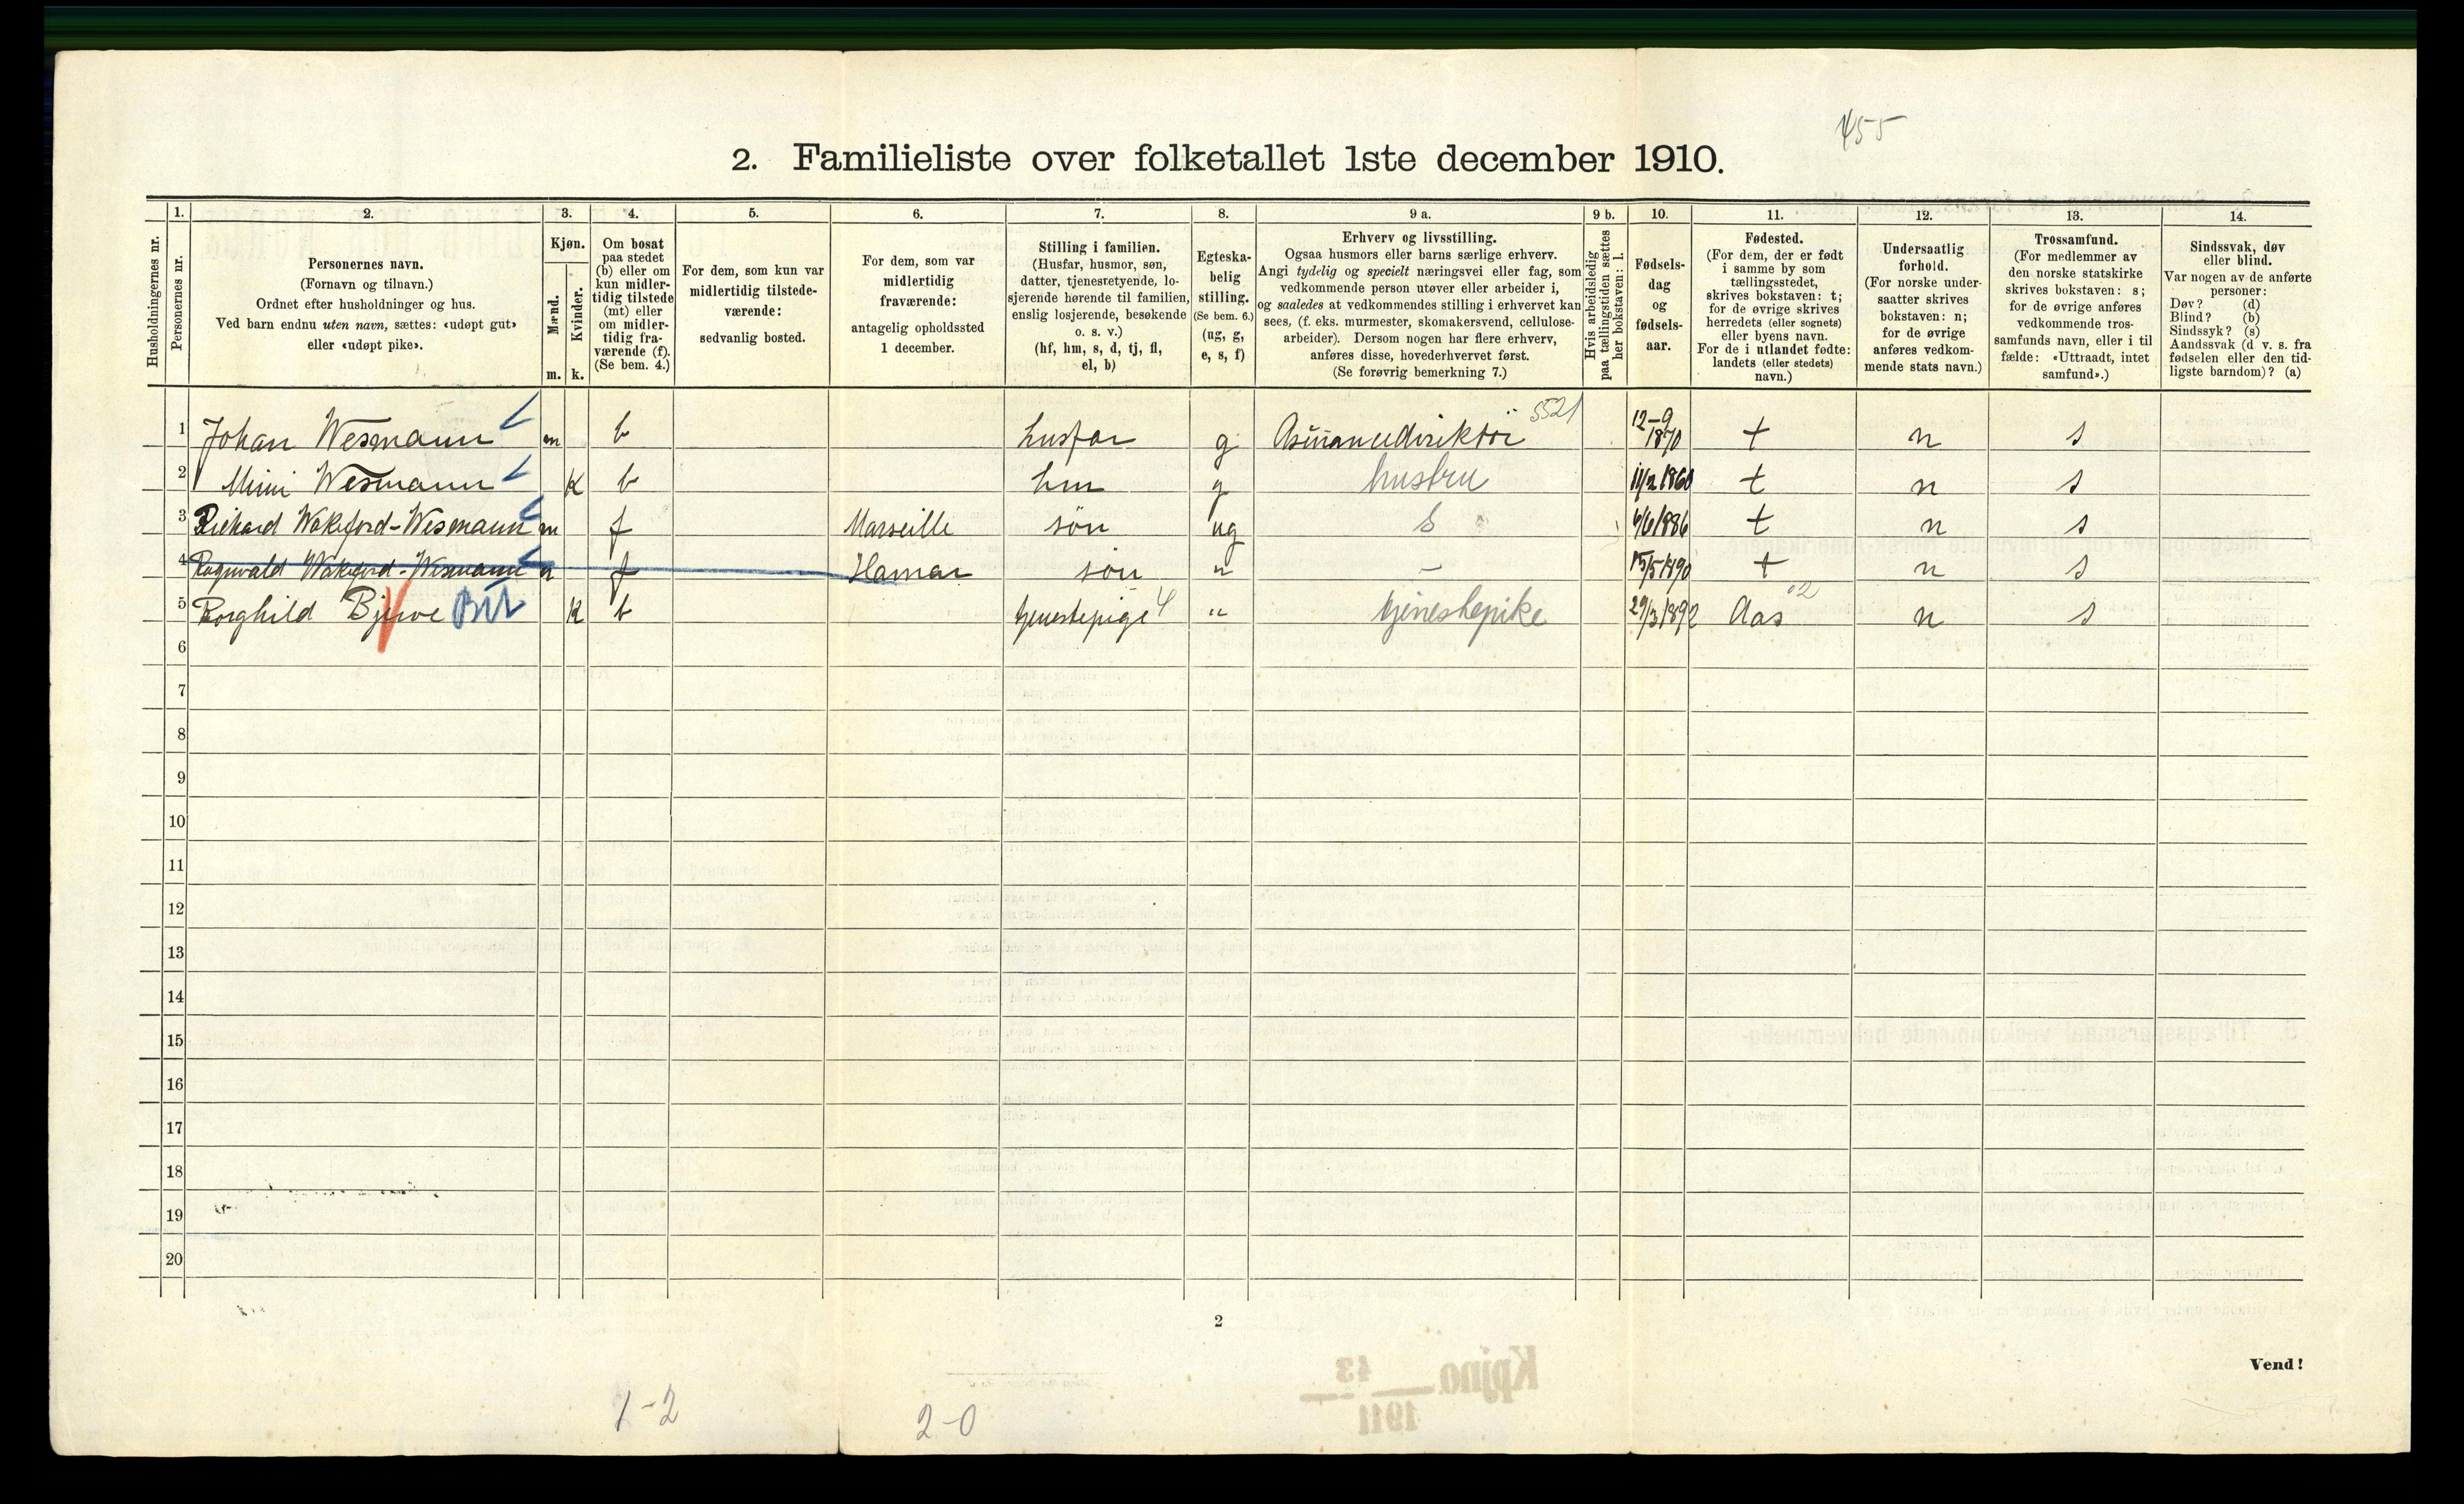 455
2. Familieliste over folketallet 1ste december 1910.
Husholdningernes nr.
1. Personernes nr.
2. Personernes navn. (Fornavn og tilnavn.) Ordnet efter husholdninger og hus. Ved barn endnu uten navn, sættes: «udøpt gut» eller «udøpt pike».
3. Kjøn. Mænd. m. Kvinder. k.
4. Om bosat paa stedet (b) eller om kun midlertidig tilstede (mt) eller om midlertidig fraværende (f). (Se bem. 4.)
5. For dem, som kun var midlertidig tilstedeværende: sedvanlig bosted.
6. For dem, som var midlertidig fraværende: antagelig opholdssted 1 december.
7. Stilling i familien. (Husfar, husmor, søn, datter, tjenestetyende, losjerende hørende til familien, enslig losjerende, besøkende o. s. v.) (hf, hm, s, d, tj, fl, el, b)
8. Egteskabelig stilling. (Se bem. 6.) (ug, g, e, s, f)
9 a. Erhverv og livsstilling. Ogsaa husmors eller barns særlige erhverv. Angi tydelig og specielt næringsvei eller fag, som vedkommende person utøver eller arbeider i, og saaledes at vedkommendes stilling i erhvervet kan sees, (f. eks. murmester, skomakersvend, cellulosearbeider). Dersom nogen har flere erhverv, anføres disse, hovederhvervet først. (Se forøvrig bemerkning 7.)
9 b. Hvis arbeidsledig paa tællingstiden sættes her bokstaven: l.
10. Fødselsdag og fødselsaar.
11. Fødested. (For dem, der er født i samme by som tællingsstedet, skrives bokstaven: t; for de øvrige skrives herredets (eller sognets) eller byens navn. For de i utlandet fødte: landets (eller stedets) navn.)
12. Undersaatlig forhold. (For norske undersaatter skrives bokstaven: n; for de øvrige anføres vedkommende stats navn.)
13. Trossamfund. (For medlemmer av den norske statskirke skrives bokstaven: s; for de øvrige anføres vedkommende trossamfunds navn, eller i tilfælde: «Uttraadt, intet samfund».)
14. Sindssvak, døv eller blind. Var nogen av de anførte personer: Døv? (d) Blind? (b) Sindssyk? (s) Aandssvak (d. v. s. fra fødselen eller den tidligste barndom)? (a)
1 Johan Wesmann m b husfar g 5521 12-9 1870 t n s
2 Mimi Wesmann k b hm g hustru t n s
3 Richard Wakeford-Wesmann m f Marseille søn ug 6/6 1886 t n s
4 Ragnvald Wakeford-Wesmann f Hamar søn " - 15/5 1890 t n s
5 Borghild Bjerve k b tjenestepige 4 " tjenestepike 29/3 1892 Aas 02 n s
6
7
8
9
10
11
12
13
14
15
16
17
18
19
20
2
Vend!
1-2
2-0
Kpjno 43 1911